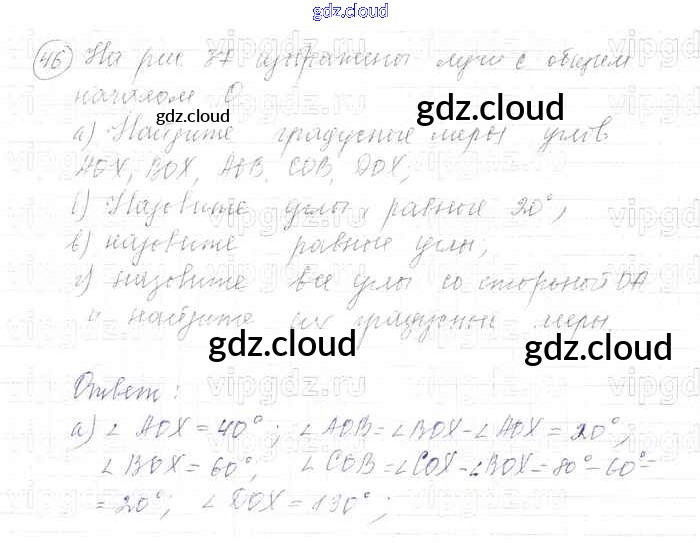 gdz.cloud
46 На рис 37 изображены лучи с общим
началом О
gdz.cloud gdz.cloud
а) Найдите градусные меры углов
АОХ, ВОХ, АОВ, СОВ, DОХ;
б) Назовите углы, равные 20°;
в) назовите равные углы;
г) назовите все углы со стороной ОА
и найдите их градусные меры.
gdz.cloud gdz.cloud
Ответ:
а) ∠ AOX = 40°; ∠ AOB = ∠ BOX - ∠ AOX = 20°;
∠ BOX = 60°; ∠ COB = ∠ COX - ∠ BOX = 80° - 60° =
= 20°; ∠ DOX = 130°;